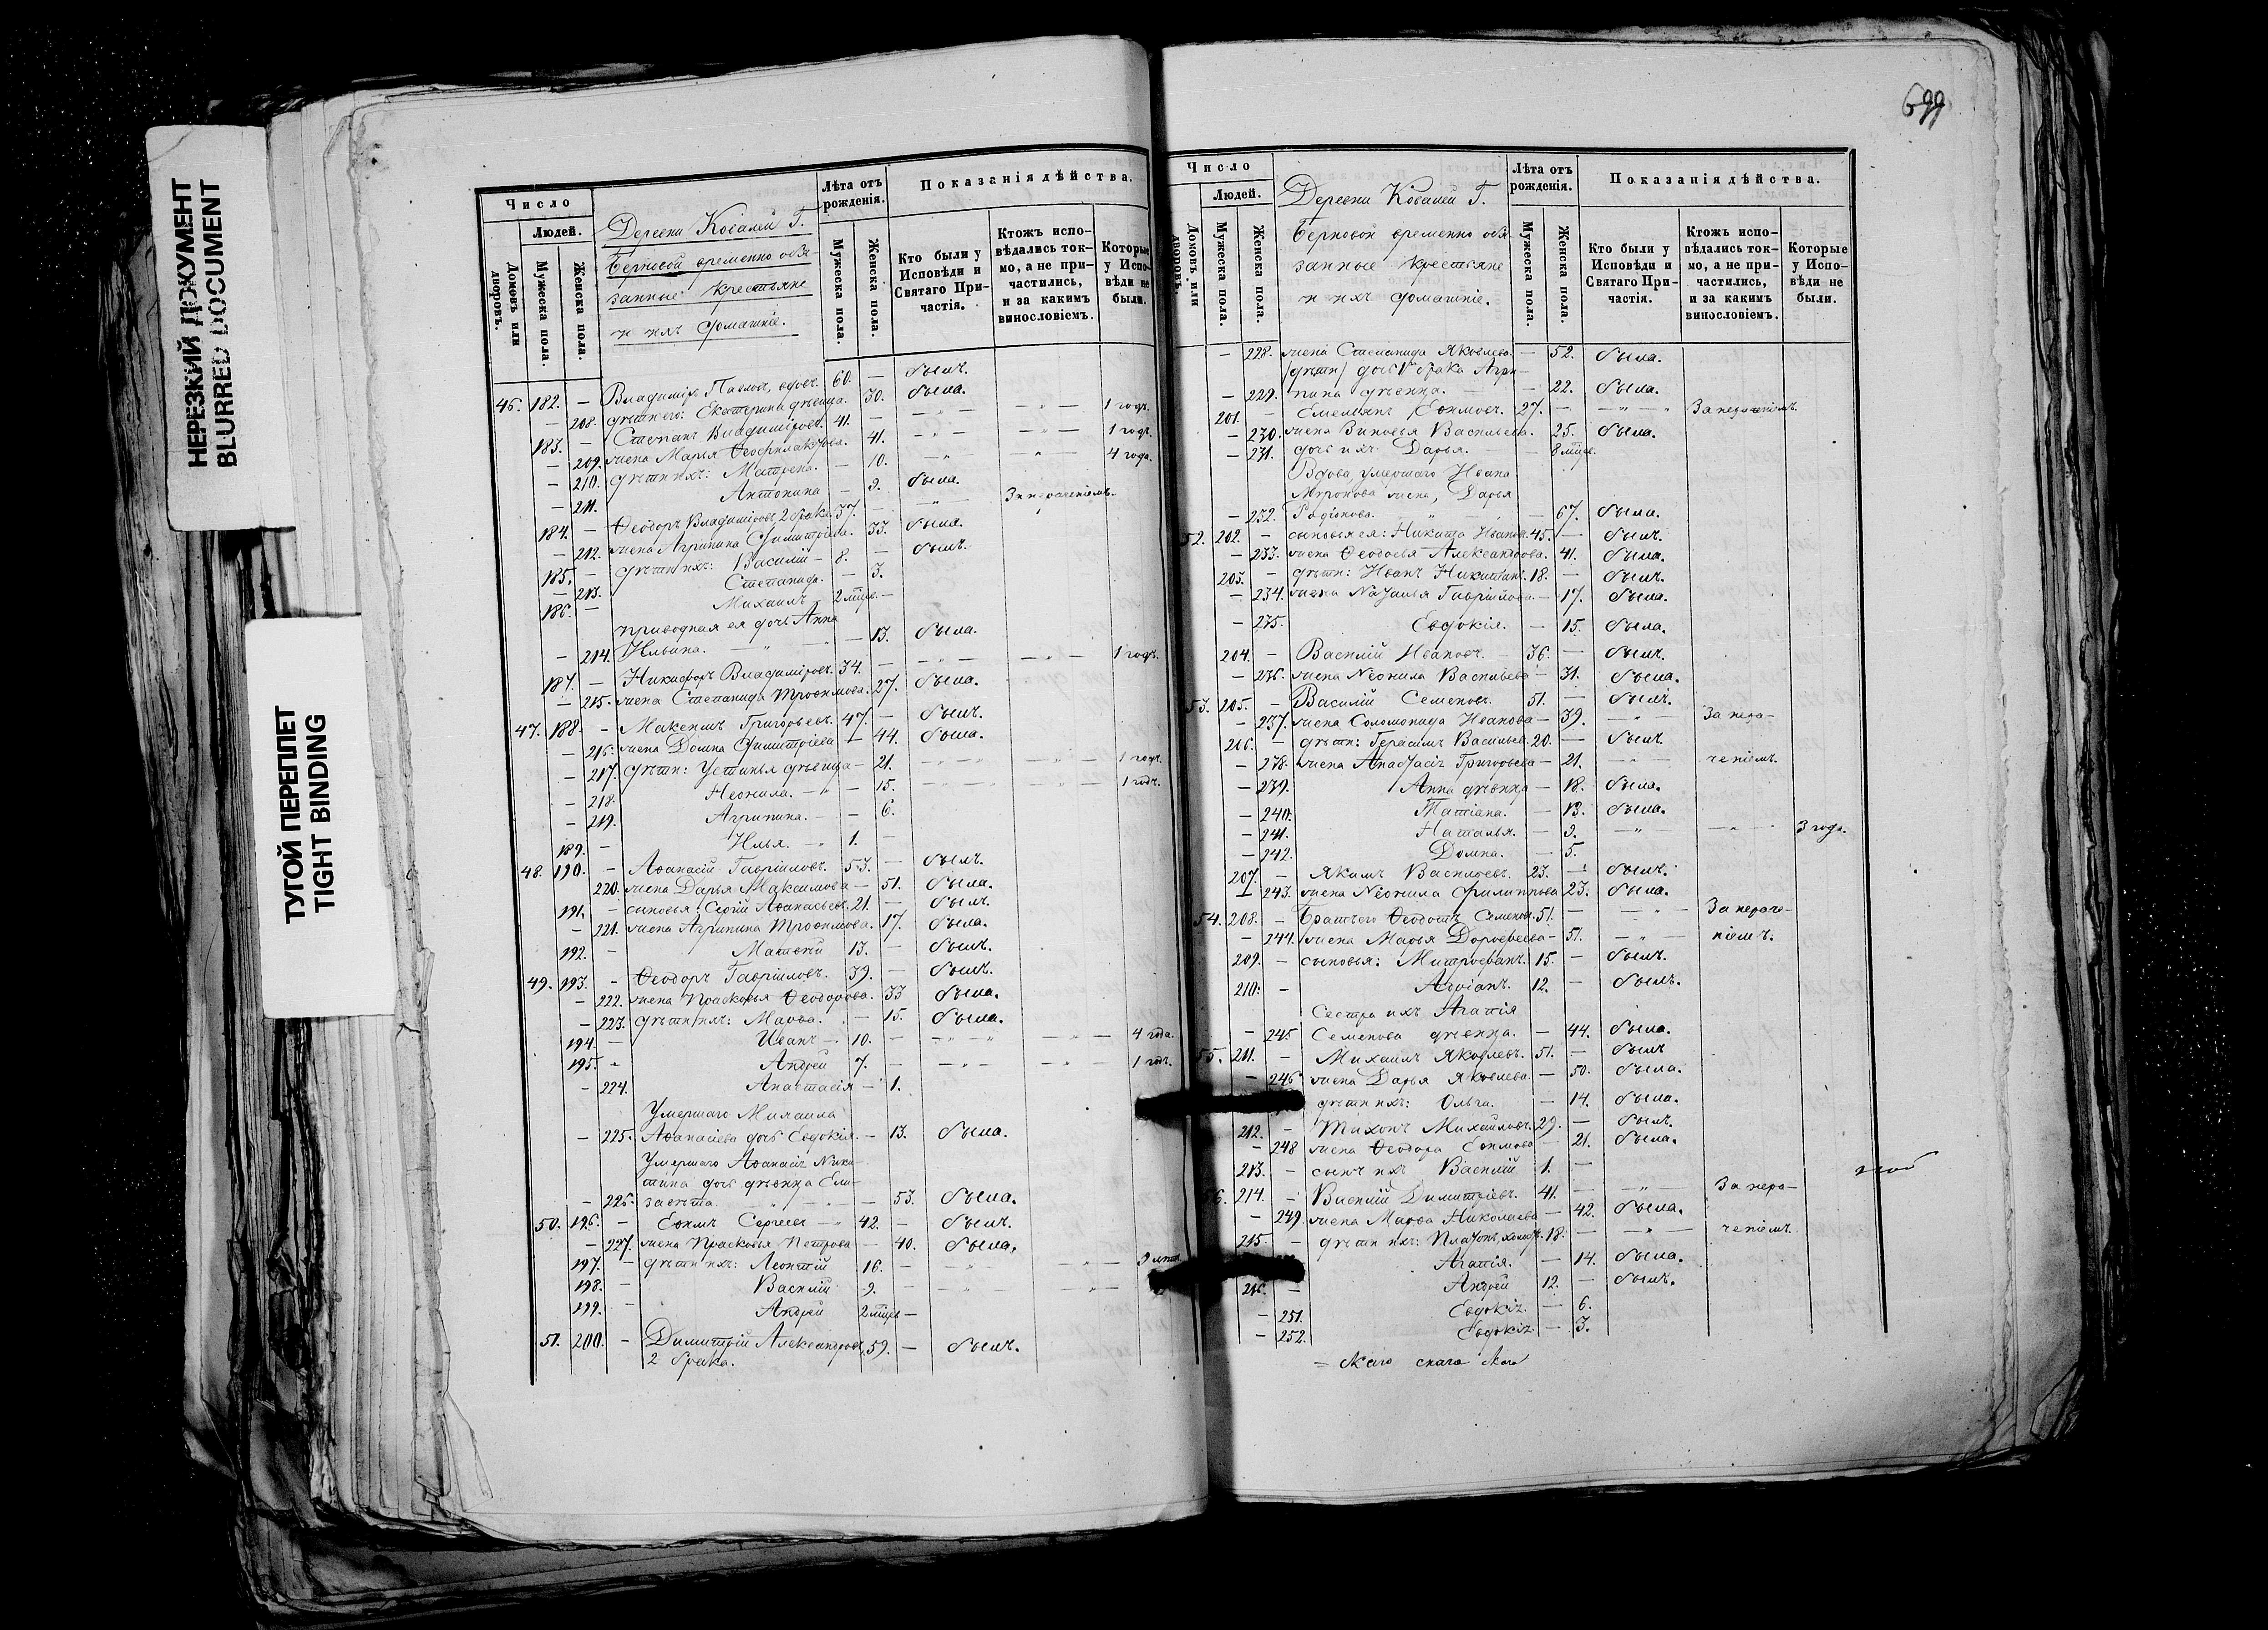 НЕРЕЗКИЙ ДОКУМЕНТ
BLURRED DOCUMENT
ТУГОЙ ПЕРЕПЛЕТ
TIGHT BINDING
Число
Людей.
Домовъ или дворовъ.
Мужеска пола.
Женска пола.
Деревни Ковалей Г.
Берновой временно обя-
занные крестьяне
и ихъ домашніе.
Лѣта отъ рожденія.
Мужеска пола.
Женска пола.
Показанія дѣйства.
Кто были у Исповѣди и Святаго При-частія.
Ктожъ испо-вѣдались ток-мо, а не при-частились, и за какимъ винословіемъ.
Которые у Испо-вѣди не были.
46. 182. — Владиміръ Павловъ, вдовъ. 60. — былъ.
— 208. дѣти его: Екатерина дѣвица. 30. была.
183. — Стефанъ Владиміровъ. 41. — — „ — — „ — 1 годъ.
— 209. жена Марья Ѳеофилактова. 41. — „ — — „ — 1 годъ.
— 210. дѣти ихъ: Матрона. — 10. — „ — „ — 4 года.
— 211. Антонина — 9. была.
184. — Ѳеодоръ Владиміровъ, 2 брака. 37. — — „ — За нераченіемъ.
— 212. жена Агрипина Димитріева. 33. была.
185. — дѣти ихъ: Василій — 8. — былъ.
— 213. Стефанида. — 3.
186. — Михаилъ — 2 мѣсц. —
приводная ея дочь Анна
— 214. Ильина. — „ — 13. была.
187. — Никифоръ Владиміровъ. 34. — — „ — — „ — 1 годъ.
— 215. жена Стефанида Трофимова. 27. была.
47. 188. — Максимъ Григорьевъ. 47. — былъ.
— 216. жена Домна Димитріева — 44. была.
— 217. дѣти: Устинья дѣвица — 21. — „ — — „ — 1 годъ.
— 218. Неонила. — „ — 15. — „ — — „ — 1 годъ.
— 219. Агрипина. — — 6.
189. — Илья. — „ 1. —
48. 190. — Аѳанасій Гавріиловъ. 53. — былъ.
220. жена Дарья Максимова — 51. была.
191. — сыновья: Сергій Аѳанасьевъ. 21. — былъ.
— 221. жена Агрипина Трофимова. 17. была.
192. — Матвѣй 13. — былъ.
49. 193. — Ѳеодоръ Гавріиловъ. 39. — былъ.
— 222. жена Прасковья Ѳеодорова. 33 была.
— 223. дѣти ихъ: Марѳа. — 15. была.
194. — Иванъ — 10. — — „ — — „ — 4 года.
195. — Андрей 7. — — „ — — „ — 1 годъ.
— 224. Анастасія — 1.
Умершаго Михаила
— 225. Аѳанасіева дочь Евдокія. — 13. была.
Умершаго Аѳанасія Ники-
тина дочь дѣвица Ели-
— 226. завѣта. — „ — 53. была.
50. 196. — Ефимъ Сергеевъ — 42. — былъ.
— 227. жена Прасковья Петрова — 40. была.
197. — дѣти ихъ: Леонтій 16. — — „ — — „ — 9 лѣтъ
198. — Василій 9. — — „ — — „ —
199. — Андрей 2 мѣсц —
51. 200. — Димитрій Александровъ, 59. — былъ.
2 брака.
699
Число
Людей.
Домовъ или дворовъ.
Мужеска пола.
Женска пола.
Деревни Ковалей Г.
Берновой временно обя-
занные крестьяне
и ихъ домашніе.
Лѣта отъ рожденія.
Мужеска пола.
Женска пола.
Показанія дѣйства.
Кто были у Исповѣди и Святаго При-частія.
Ктожъ испо-вѣдались ток-мо, а не при-частились, и за какимъ винословіемъ.
Которые у Испо-вѣди не были.
— 228. жена Стефанида Яковлева. — 52. была.
дѣти дочь 1 брака Агри-
— 229. пина дѣвица. — 22. была.
201. — Емельянъ Ефимовъ. 27. — — „ — За нераченіемъ.
— 230. жена Зиновья Васильева. 25. была.
— 231. дочь ихъ Дарья. — 8 мѣсц.
Вдова, умершаго Ивана
Миронова жена, Дарья
— 232. Родіонова. — 67. была.
52. 202. — сыновья ея: Никита Ивановъ. 45. — былъ.
— 233. жена Ѳеодосія Александрова. 41. была.
203. — дѣти: Иванъ Никитинъ. 18. — былъ.
— 234. жена Наталья Гавріилова. — 17. была.
— 235. Евдокія. — 15. была.
204. — Василій Ивановъ. 36. — былъ.
— 236. жена Неонила Васильева — 31. была.
53. 205. — Василій Семеновъ. 51. — былъ.
— 237. жена Соломонида Иванова — 39. — „ — За нера-
206. — дѣти: Герасимъ Васильев. 20. — былъ.
— 238. жена Анастасія Григорьева — 21. — „ — ченіемъ.
— 239. Анна дѣвица — 18. была.
— 240. Татіана. — 13. была.
— 241. Наталья. — 9. — „ — — „ — 3 года.
— 242. Домна. — 5.
207. — Якимъ Васильевъ. 23. — былъ.
— 243. жена Неонила Филиппова 23. была.
54. 208. — Братъ его Ѳеодотъ Семенов. 51. — — „ За нераче-
— 244. жена Марья Дорофеева — 51. — „ — ніемъ.
209. — сыновья: Митрофанъ. 15. — былъ.
210. — Адріанъ. 12. — былъ.
Сестра ихъ Агафія
— 245 Семенова дѣвица. — 44. была.
55. 211. — Михаилъ Яковлевъ. 51. — былъ
— 246 жена Дарья Яковлева. — 50. была.
дѣти ихъ: Ольга. — 14. была.
212. — Тихонъ Михайловъ. 29. — былъ.
— 248 жена Ѳеодора Ефимова — 21. была.
213. — сынъ ихъ Василій 1. —
56. 214. — Василій Димитріевъ. 41. — — „ — За нера-
— 249. жена Марѳа Николаева — 42. была.
215. — дѣти ихъ: Платонъ, холостъ. 18. — — „ — ченіемъ.
Агафія. — 14. была.
216. — Андрей 12. — былъ.
— 251. Евдокія. — 6.
— 252. Евдокія — 3.